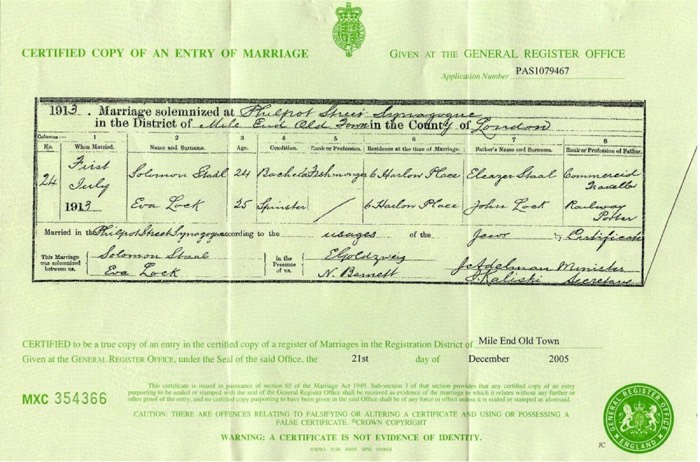 CERTIFIED COPY OF AN ENTRY OF MARRIAGE
GIVEN AT THE GENERAL REGISTER OFFICE
Application Number PAS1079467
1913. Marriage solemnized at Philpot Street Synagogue
in the District of Mile End Old Town in the County of London
Columns:— 1 2 3 4 5 6 7 8
No. When Married. Name and Surname. Age. Condition. Rank or Profession. Residence at the time of Marriage. Father's Name and Surname. Rank or Profession of Father.
24 First July 1913 Solomon Staal 24 Bachelor Fishmonger 6 Harlow Place Eleazer Staal Commercial Traveller
Eva Lock 25 Spinster / 6 Harlow Place John Lock Railway Porter
Married in the Philpot Street Synagogue according to the usages of the Jews by Certificate
This Marriage was solemnized between us, Solomon Staal Eva Lock in the Presence of us, E Goldzweig N. Barnett J. Adelman Minister S. Kaliski Secretary
CERTIFIED to be a true copy of an entry in the certified copy of a register of Marriages in the Registration District of Mile End Old Town
Given at the GENERAL REGISTER OFFICE, under the Seal of the said Office, the 21st day of December 2005
MXC 354366
This certificate is issued in pursuance of section 65 of the Marriage Act 1949. Sub-section 3 of that section provides that any certified copy of an entry
purporting to be sealed or stamped with the seal of the General Register Office shall be received as evidence of the marriage to which it relates without any further or
other proof of the entry, and no certified copy purporting to have been given in the said Office shall be of any force or effect unless it is sealed or stamped as aforesaid.
CAUTION: THERE ARE OFFENCES RELATING TO FALSIFYING OR ALTERING A CERTIFICATE AND USING OR POSSESSING A
FALSE CERTIFICATE. ©CROWN COPYRIGHT
WARNING: A CERTIFICATE IS NOT EVIDENCE OF IDENTITY.
JC
GENERAL REGISTER OFFICE
ENGLAND